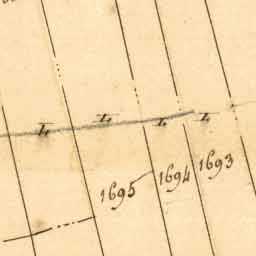 1695 1694 1693